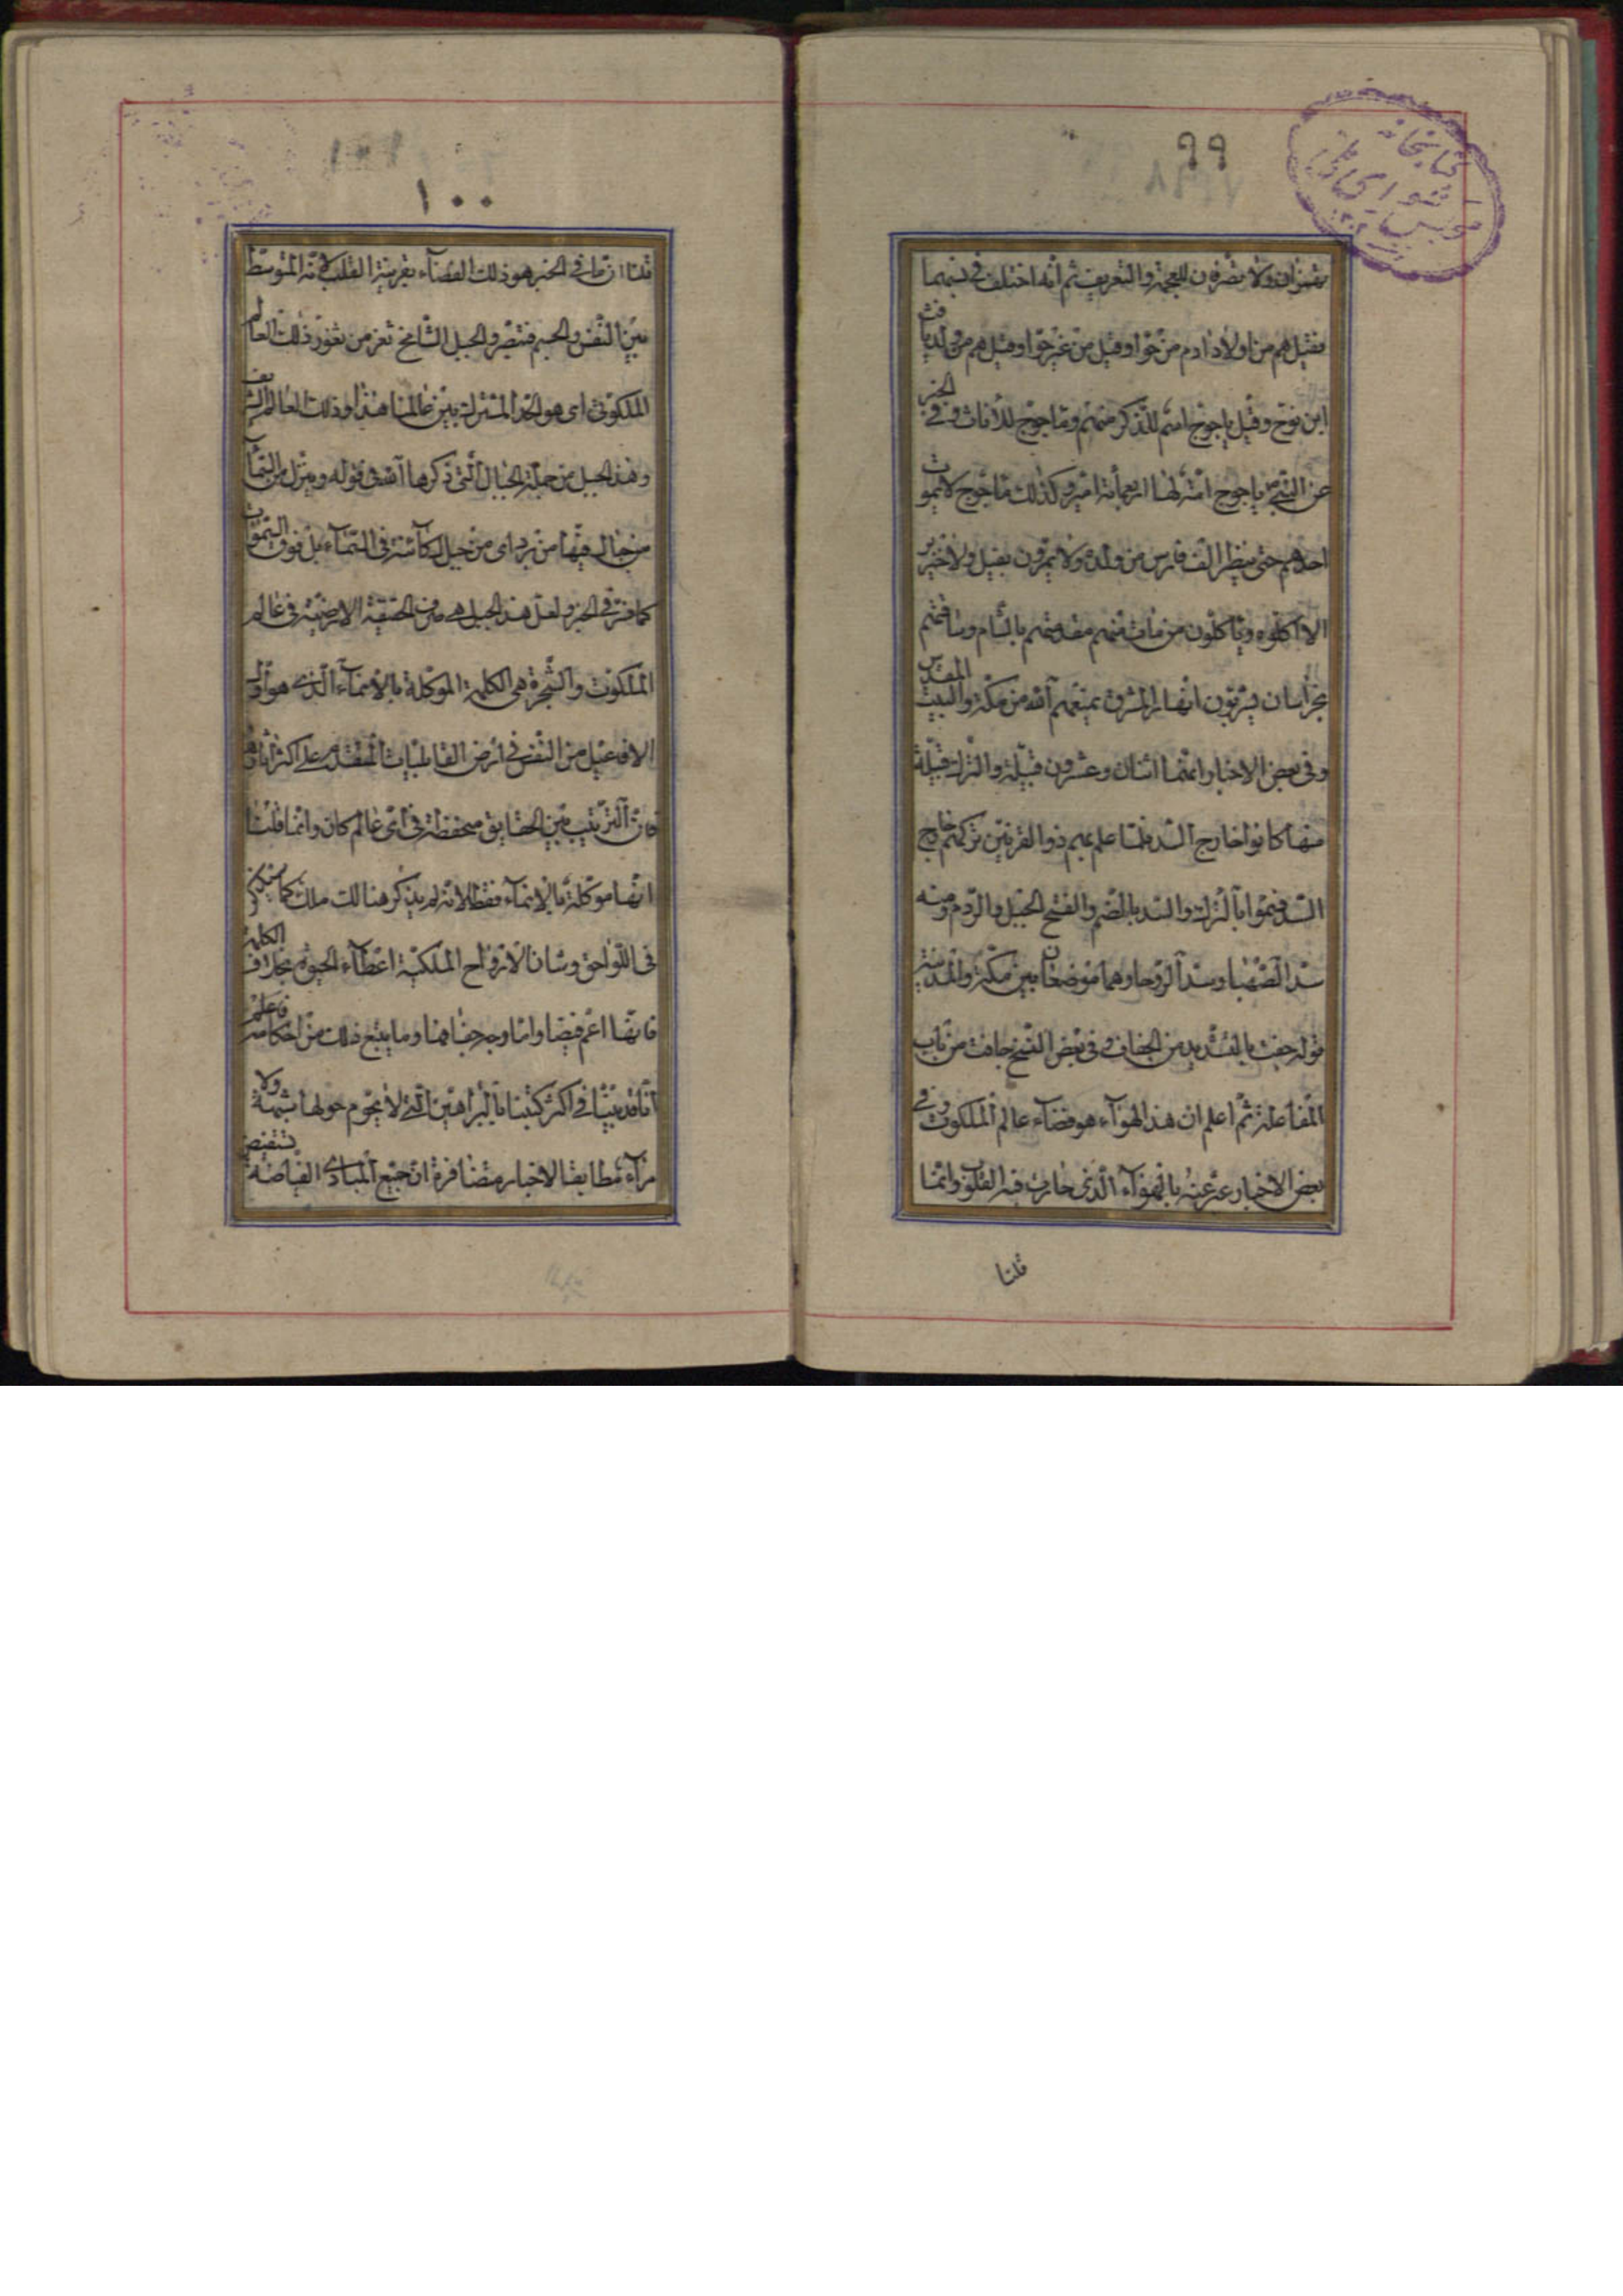 ٩٩
كتابخانه مجلس شوراى ملى
يهمزان ولا يصرفون للعجمة والتعريف ثم انه اختلف فى نسبهما
فقيل هم من اولاد ادم من حوا وقيل من غير حوا وقيل هم من ولد يافث
ابن نوح وقيل ياجوج اسم للذكر منهم وماجوج للاناث وفى الخبر
عن النبى ص ياجوج امة لها اربعمأية امير وكذلك ماجوج لا يموت
احدهم حتى ينظر الف فارس من ولده ولا يمرون بفيل ولا خنزير
الا اكلوه وياكلون من مات منهم مقدمتهم بالشام وساقتهم
بخراسان يشربون انهار المشرق يمنعهم الله من مكة والبيت المقدس
وفى بعض الاخبار انهما اثنان وعشرون قبيلة والترك قبيلة
منها كانوا خارج السد فلما علم بهم ذو القرنين تركهم خارج
السد فسموا بالترك والسد بالضم والفتح الجبل والردم ومنه
سد الصهبا وسد الروحا وهما موضعان بين مكة والمدينة
قوله جفت بالتشديد من الجفاف وفى بعض النسخ جافت من باب
المفاعلة ثم اعلم ان هذا الهواء هو فضاء عالم الملكوت وفى
بعض الاخبار عبر عنه بالهواء الذى حارت فيه القلوب وانما
قلنا
١٠٠
قلنا ان ما فى الخبر هو ذلك الفضاء بقرينة القلب لانه المتوسط
بين النفس والجسم فتبصر والجبل الشامخ ثغر من ثغور ذلك العالم
الملكوتى اى هو الحد المشترك بين عالمنا هذا وذلك العالم الشريف
وهذا الجبل من جملة الجبال التى ذكرها الله فى قوله وينزل من السماء
من جبال فيها من برد اى من جبال كائنة فى السماء بل فوق السموات
كما فى الخبر ولعل هذا الجبل هى الحقيقة الارضية فى عالم
الملكوت والشجرة هى الكلمة الموكلة بالانماء الذى هو اول
الافاعيل من النفس فى ارض القابليات المتقدم على اكثر
فان الترتيب بين الحقايق منحفظة فى اى عالم كان وانما قلنا
انها موكلة بالانماء فقط لانه لم يذكر هنالك ملك كما سيذكر
فى اللواحق وشان الارواح الملكية اعطاء الحيوة بخلاف الكلمة
فانها اعم فيضا واما وجه جفافها وما يتبع ذلك من احكامه فاعلم
انا قد بينا فى اكثر كتبنا بالبراهين التى لا يحوم حولها شبهة ولا
مراء مطابقا لاخبار متضافرة ان جميع المبادى الفياضة تستفيض